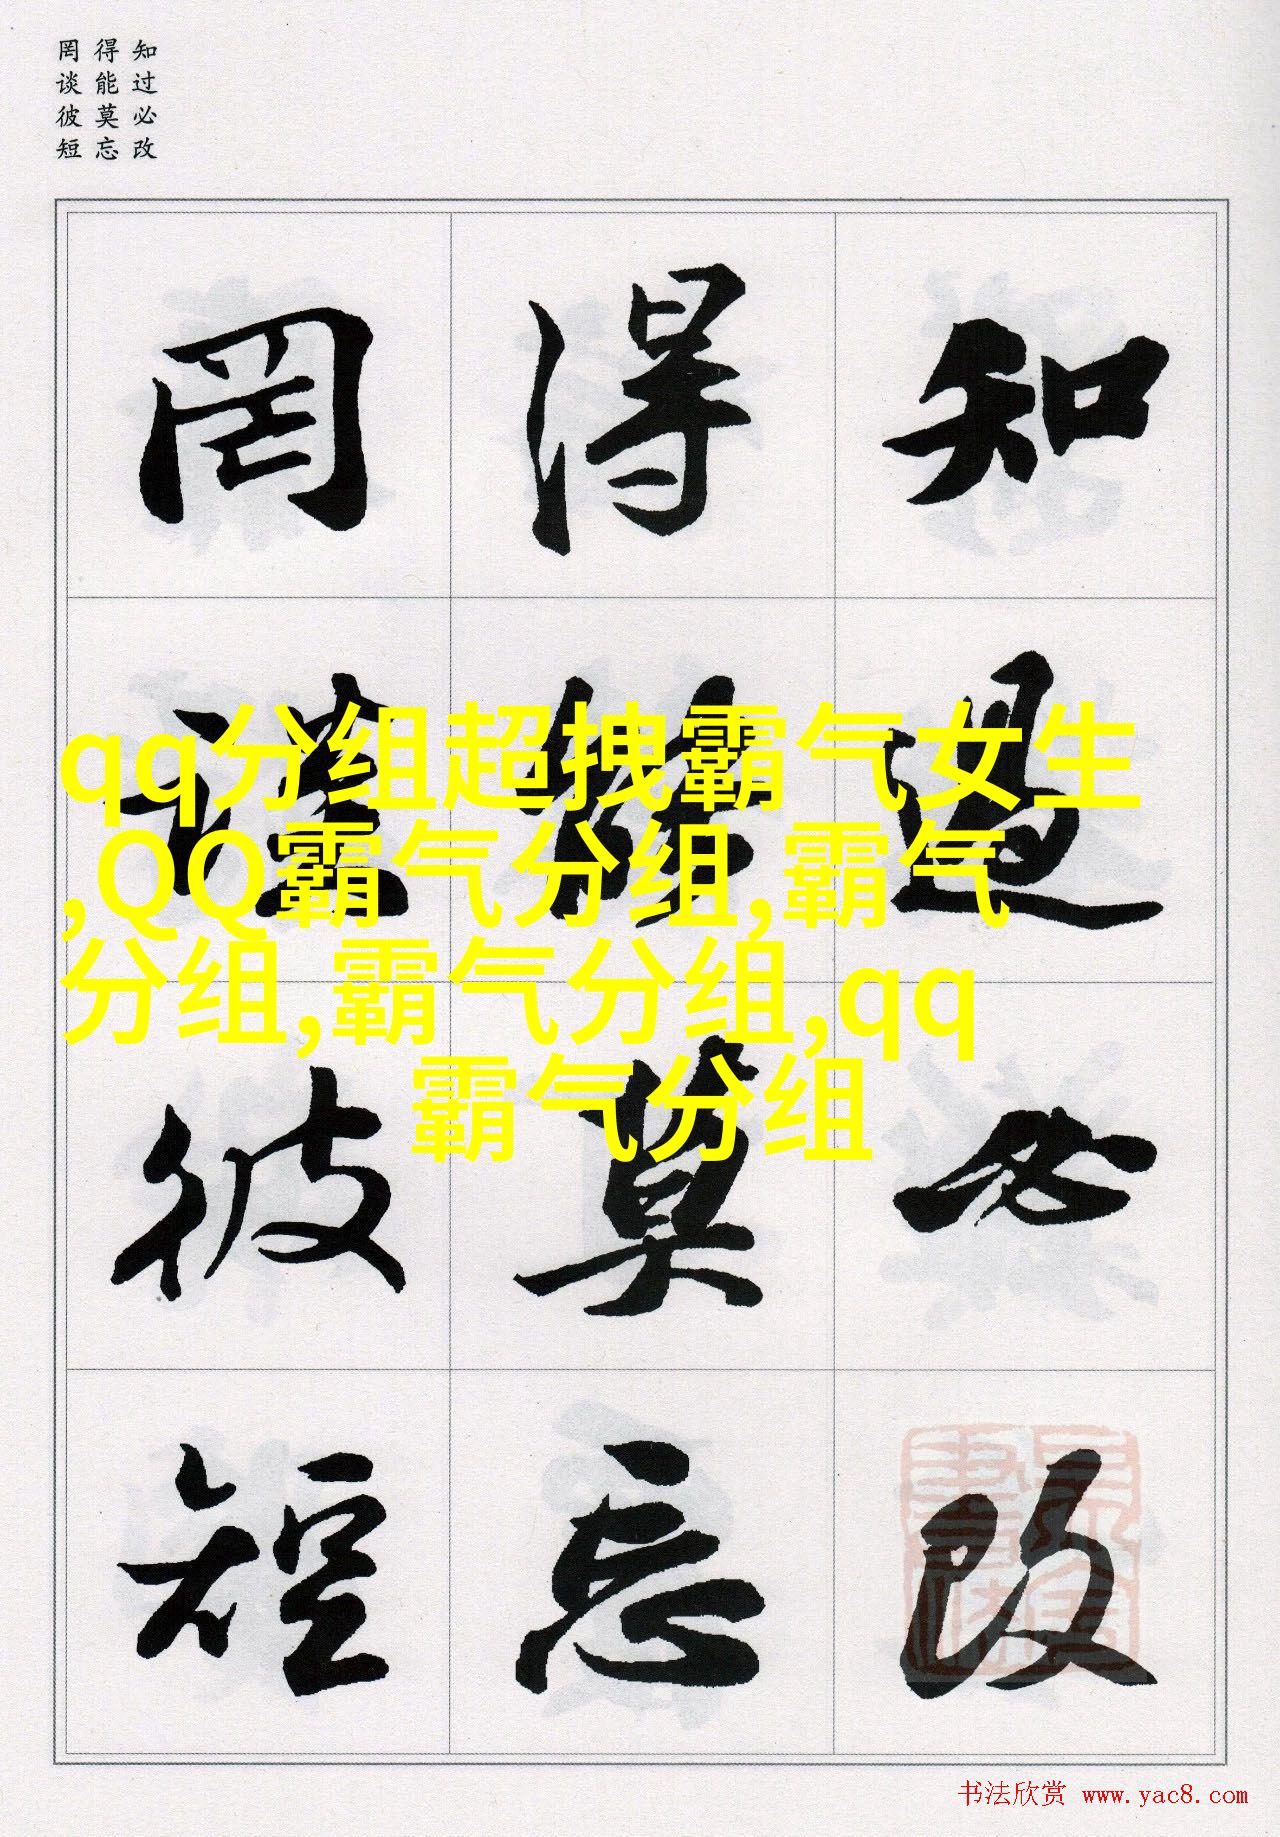 知过必改
得能莫忘
罔谈彼短
知過必改
得能莫忘
罔談彼短
qq分组超拽霸气女生
,QQ霸气分组,霸气
分组,霸气分组,qq
霸气分组
书法欣赏 www.yac8.com